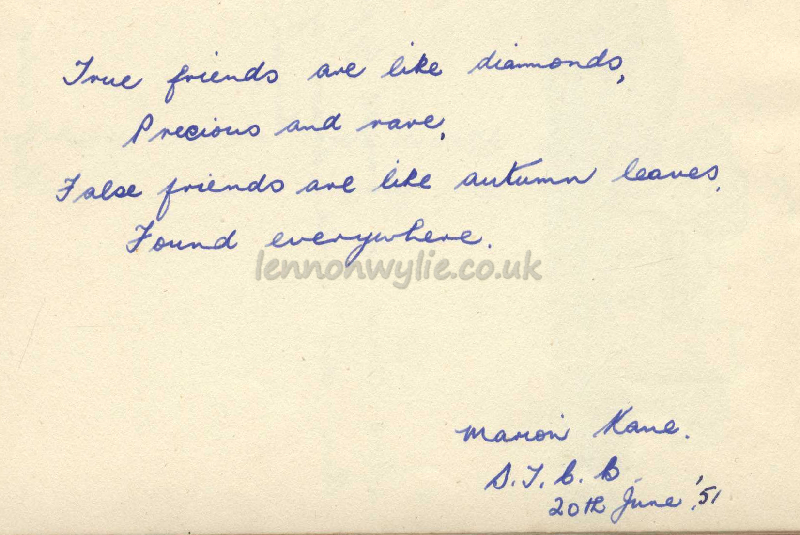 True friends are like diamonds,
Precious and rare,
False friends are like autumn leaves,
Found everywhere.
lennonwylie.co.uk
Marion Kane.
20th June '51